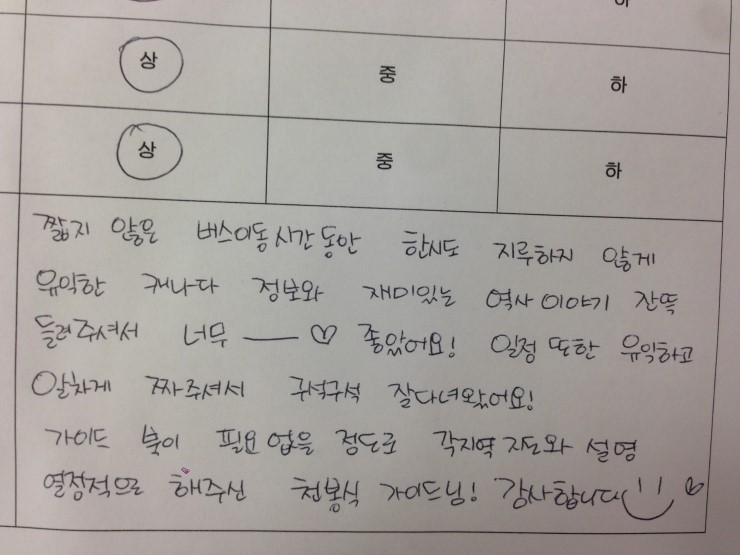 하
상 중 하
상 중 하
짧지 않은 버스이동시간동안 한시도 지루하지 않게
유익한 캐나다 정보와 재미있는 역사 이야기 잔뜩
들려주셔서 너무 —— ♡ 좋았어요! 일정 또한 유익하고
알차게 짜주셔서 구석구석 잘다녀왔어요!
가이드 북이 필요 없을 정도로 각지역 지도와 설명
열정적으로 해주신 천봉식 가이드님! 감사합니다 ♡